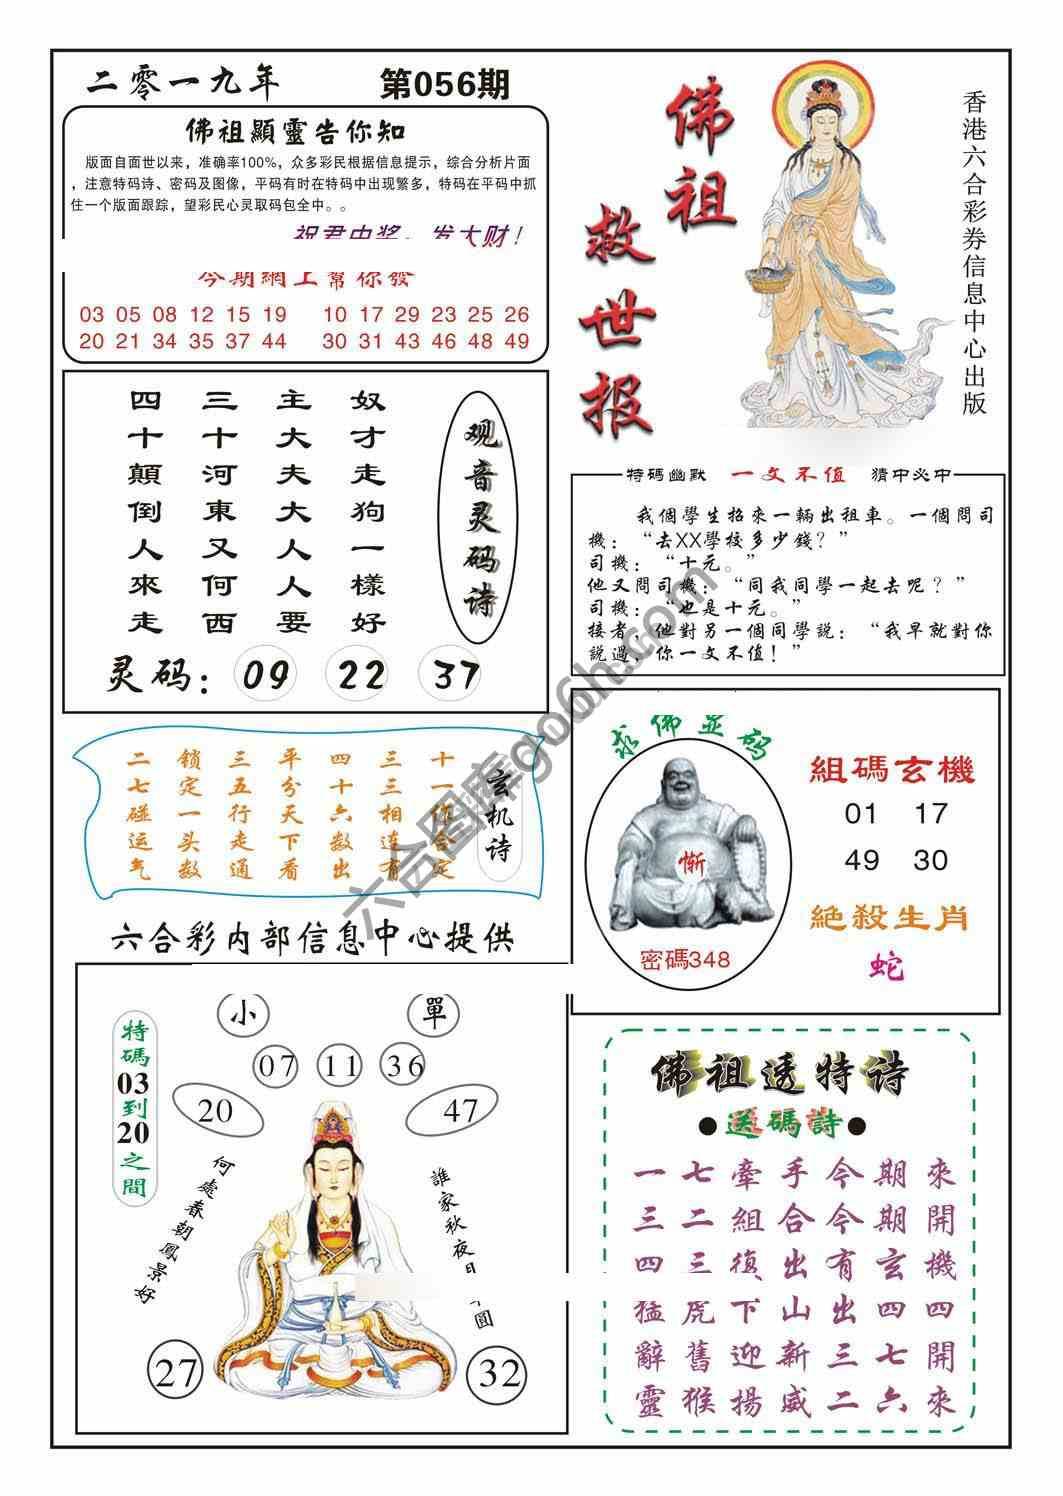 二零一九年
第056期
佛祖顯靈告你知
版面自面世以来，准确率100%，众多彩民根据信息提示，综合分析片面
，注意特码诗、密码及图像，平码有时在特码中出现繁多，特码在平码中抓
住一个版面跟踪，望彩民心灵取码包全中。。
祝君中奖，发大财！
今期網上幫你發
03 05 08 12 15 19 10 17 29 23 25 26
20 21 34 35 37 44 30 31 43 46 48 49
佛祖救世报
香港六合彩券信息中心出版
观音灵码诗
奴才走狗一樣好
主大夫大人人要
三十河東又何西
四十顛倒人來走
灵码：09 22 37
特碼幽默 一文不值 猜中必中
我個學生招來一輛出租車。一個問司
機：“去XX學校多少錢？”
司機：“十元。”
他又問司機：“同我同學一起去呢？”
司機：“也是十元。”
接者，他對另一個同學説：“我早就對你
説過，你一文不值！”
玄机诗
十一作合定
三三相连有
四十六数出
平分天下看
三五行走通
锁定一头数
二七碰运气
求佛显码
惭
密碼348
組碼玄機
01 17
49 30
絕殺生肖
蛇
六合彩内部信息中心提供
小
單
07 11 36
20 47
特碼03到20之間
何處春朝鳳景好
誰家秋夜月
圓
27
32
佛祖透特诗
●送碼詩●
一七牽手今期來
三二組合今期開
四三復出有玄機
猛虎下山出四四
辭舊迎新三七開
靈猴揚威二六來
六合图库go6h.com